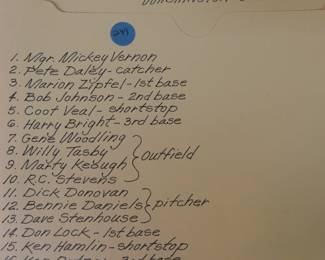 241
1. Mgr. Mickey Vernon
2. Pete Daley-catcher
3. Marion Zipfel-1st base
4. Bob Johnson-2nd base
5. Coot Veal-shortstop
6. Harry Bright-3rd base
7. Gene Woodling
8. Willy Tasby
9. Marty Keough
outfield
10. R.C. Stevens
11. Dick Donovan
12. Bennie Daniels
pitcher
13. Dave Stenhouse
14. Don Lock-1st base
15. Ken Hamlin-shortstop
base